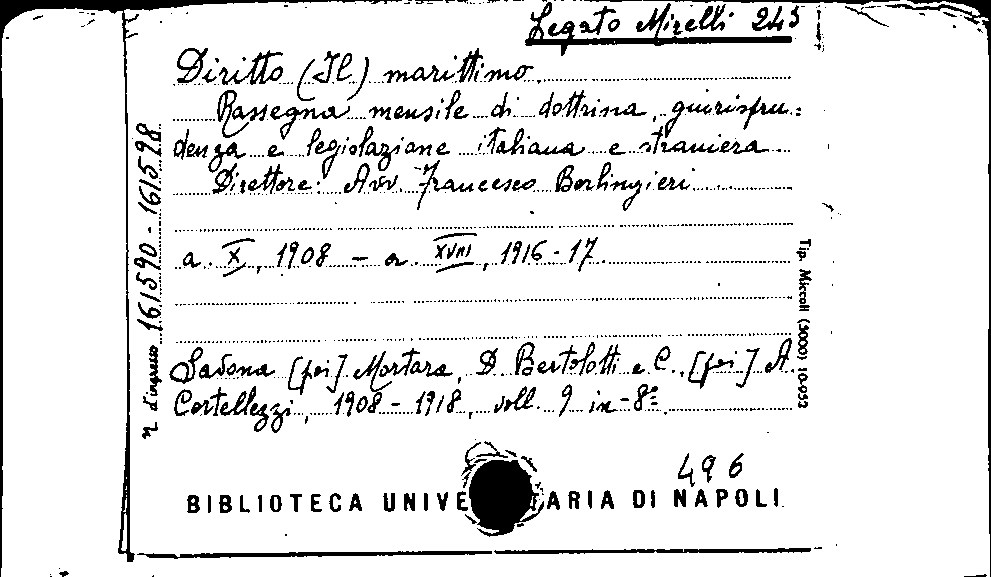 Legato Mirelli 245
Diritto (Il) marittimo.
Rassegna mensile di dottrina, giurispru=
denza e legislazione italiana e straniera
Direttore: Avv. Francesco Berlingieri
a. X, 1908 - a. XVIII, 1916-17.
Savona [poi] Mortara, D. Bertolotti e C., [poi] A.
Cortellezzi, 1908-1918, voll. 9 in-8º.
496
BIBLIOTECA UNIVE TARIA DI NAPOLI
n. d'ingresso 161590-161598
Tip. Miccoli (5000) 10-952